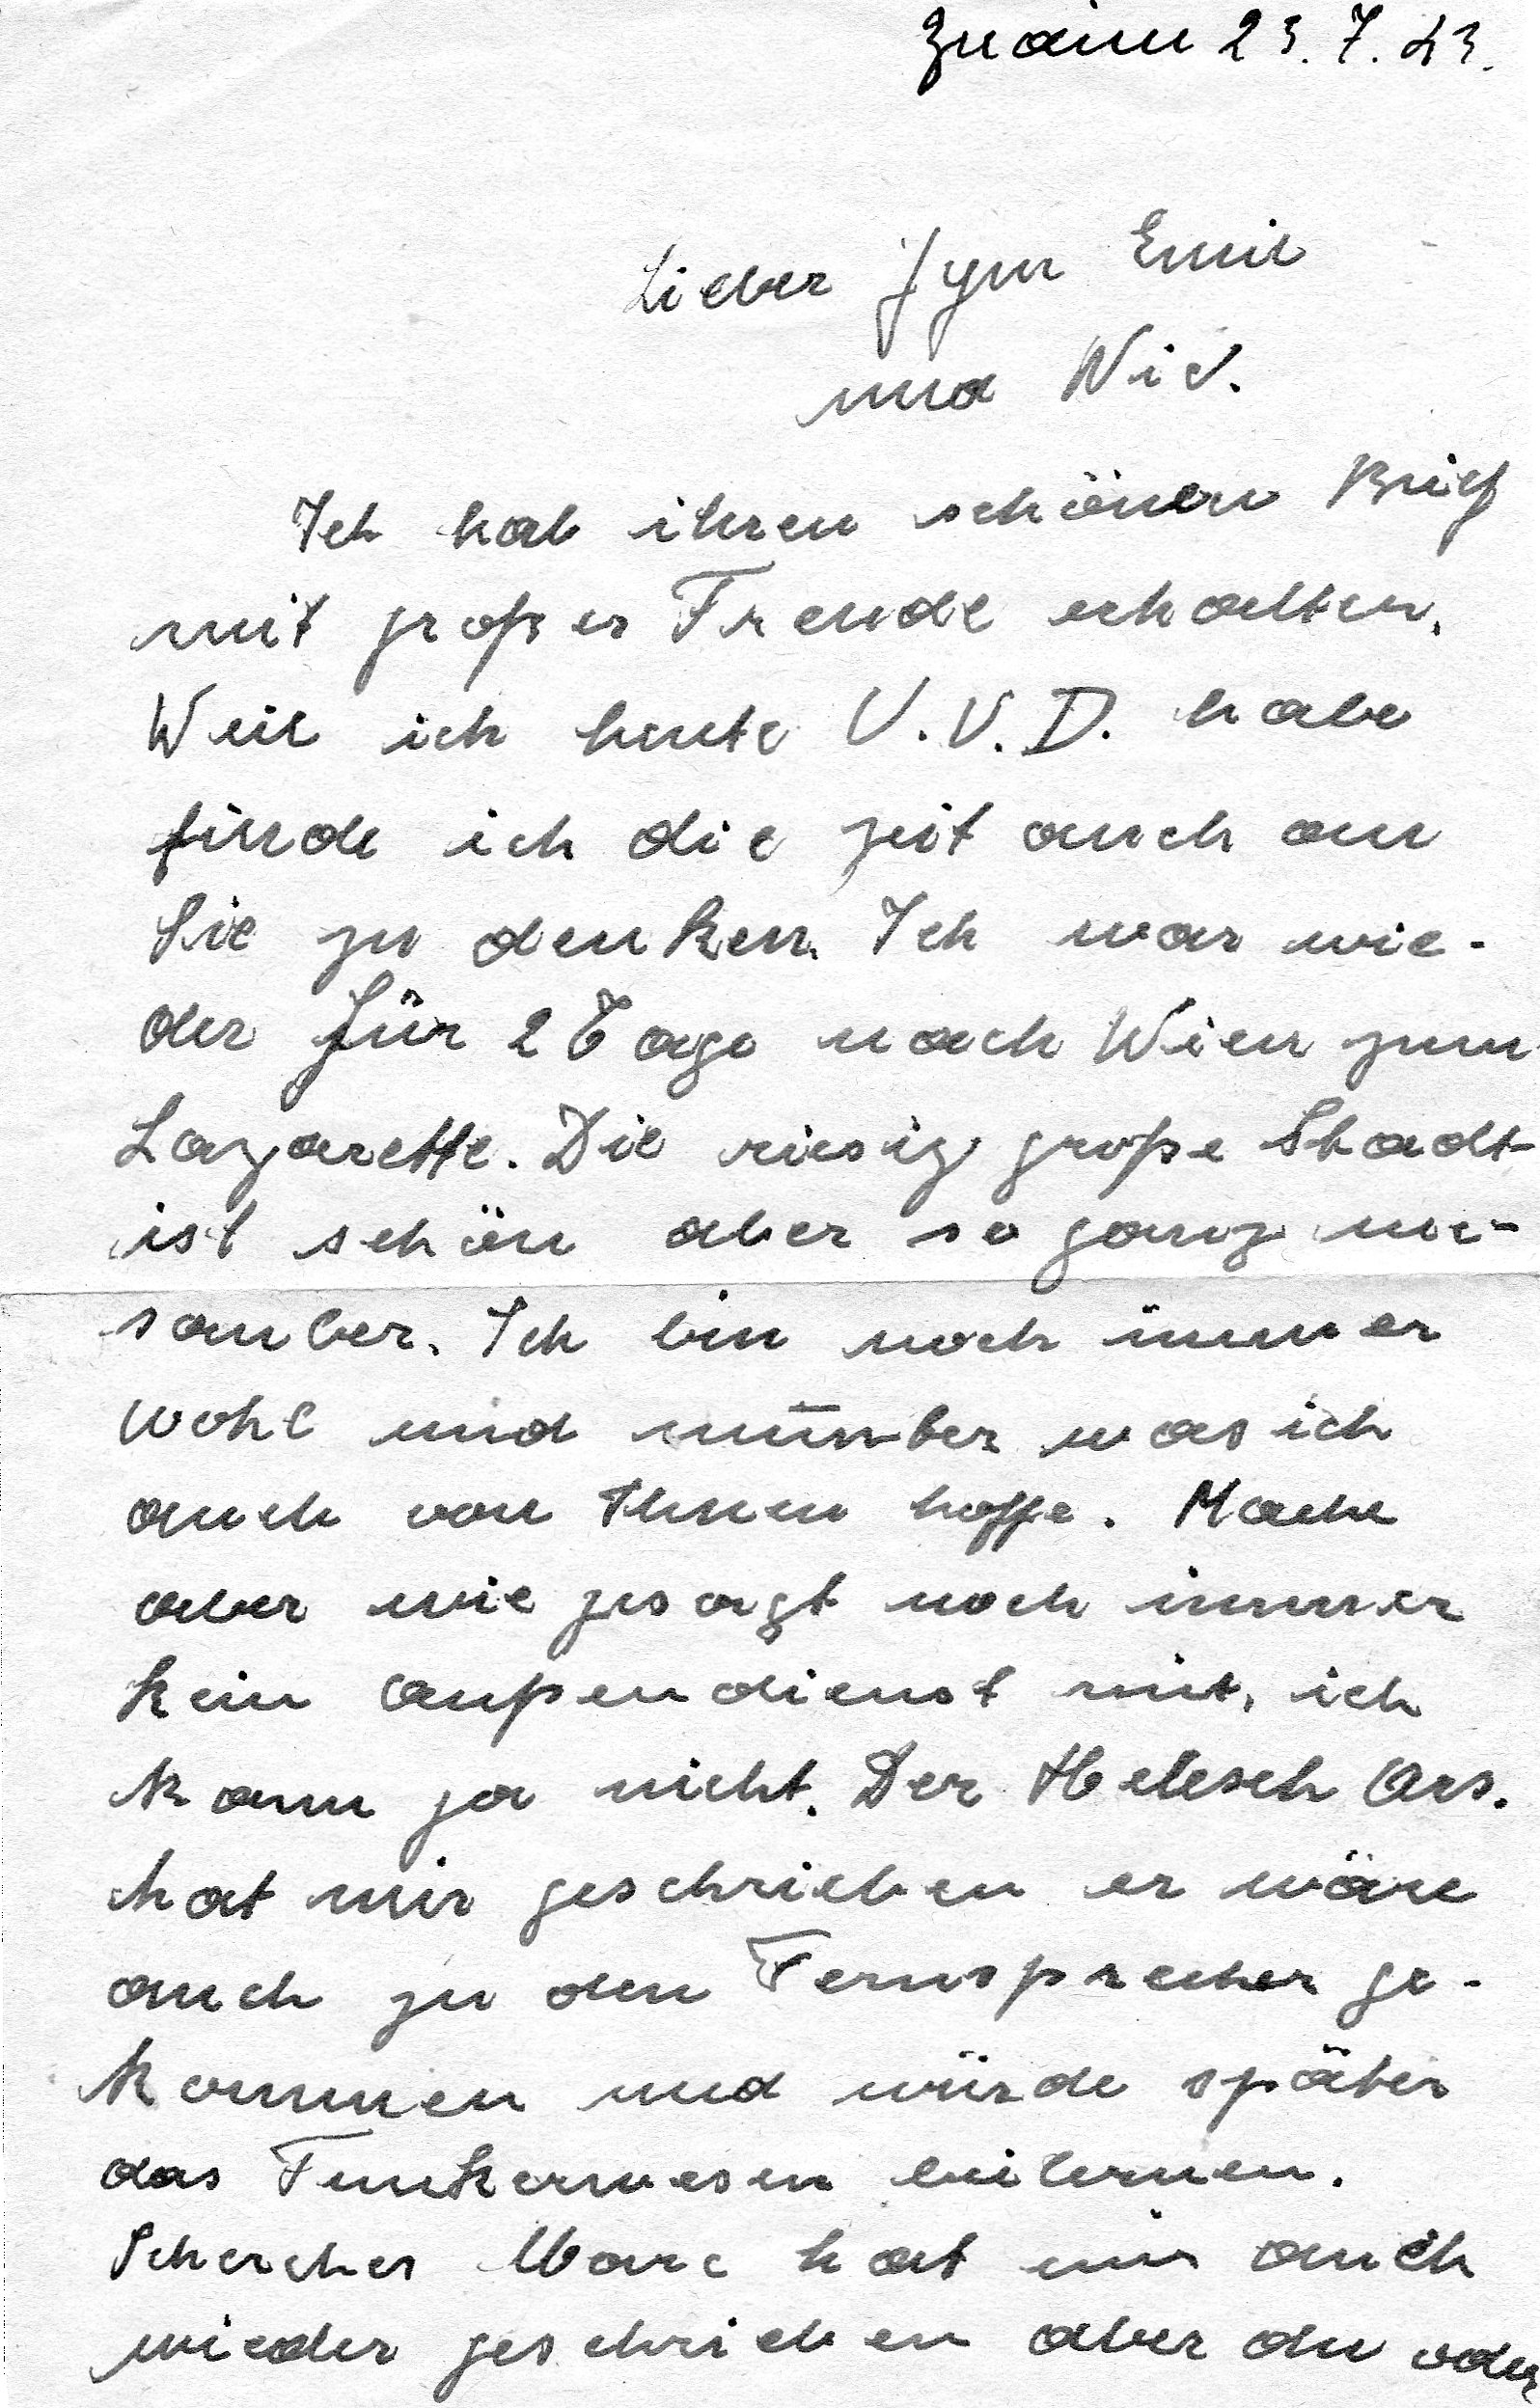 Znaim 23. 7. 43.
Lieber Jym Emil
und Nic.
Ich hab ihren schönen Brief
mit großer Freude erhalten.
Weil ich heute U.V.D. habe
finde ich die zeit auch an
Sie zu denken. Ich war wie-
der für 2 Tage nach Wien zum
Lazarette. Die riesig große Stadt
ist schön aber so ganz un-
sauber. Ich bin noch immer
wohl und munter was ich
auch von Ihnen hoffe. Mache
aber wie gesagt noch immer
kein außendienst mit, ich
kann ja nicht. Der Helesch Ars.
hat mir geschrieben er wäre
auch zu den Fernsprecher ge-
kommen und würde später
das Funkerwesen beilernen.
Schercher Marc hat mir auch
wieder geschrieben aber du oder